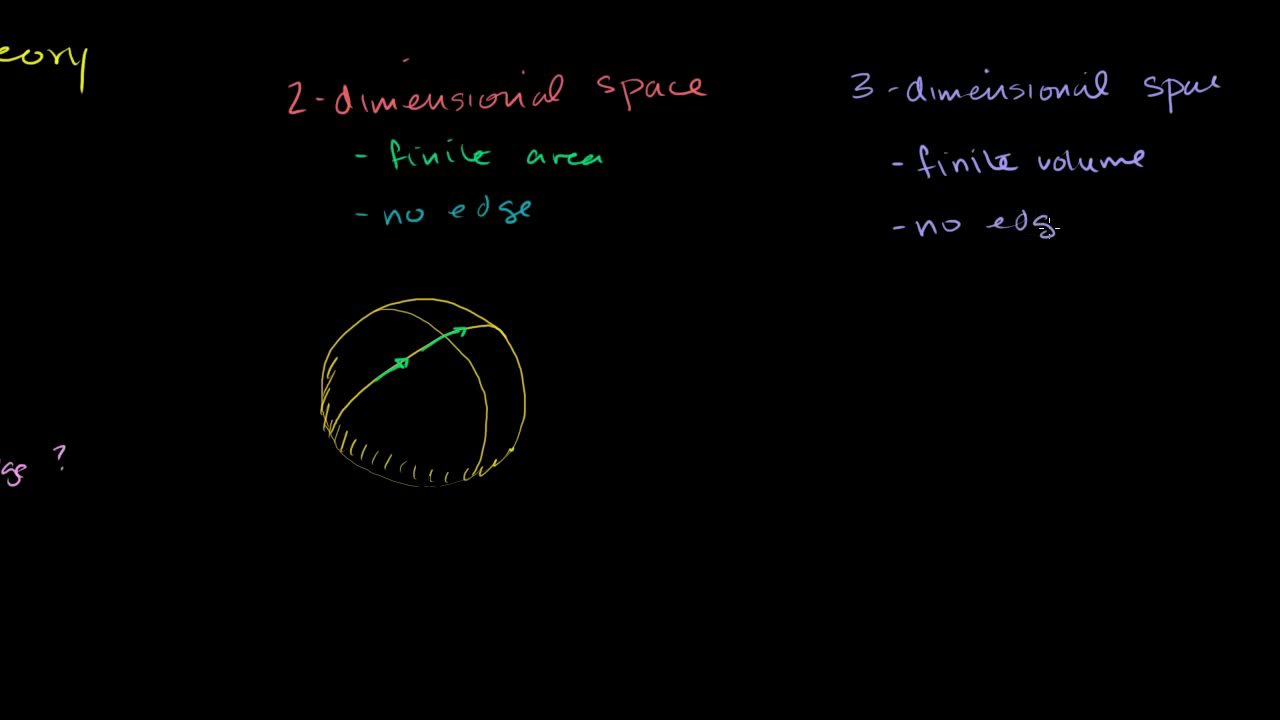 eory
2-dimensional space
- finite area
- no edge
3-dimensional space
- finite volume
- no edg
ge ?